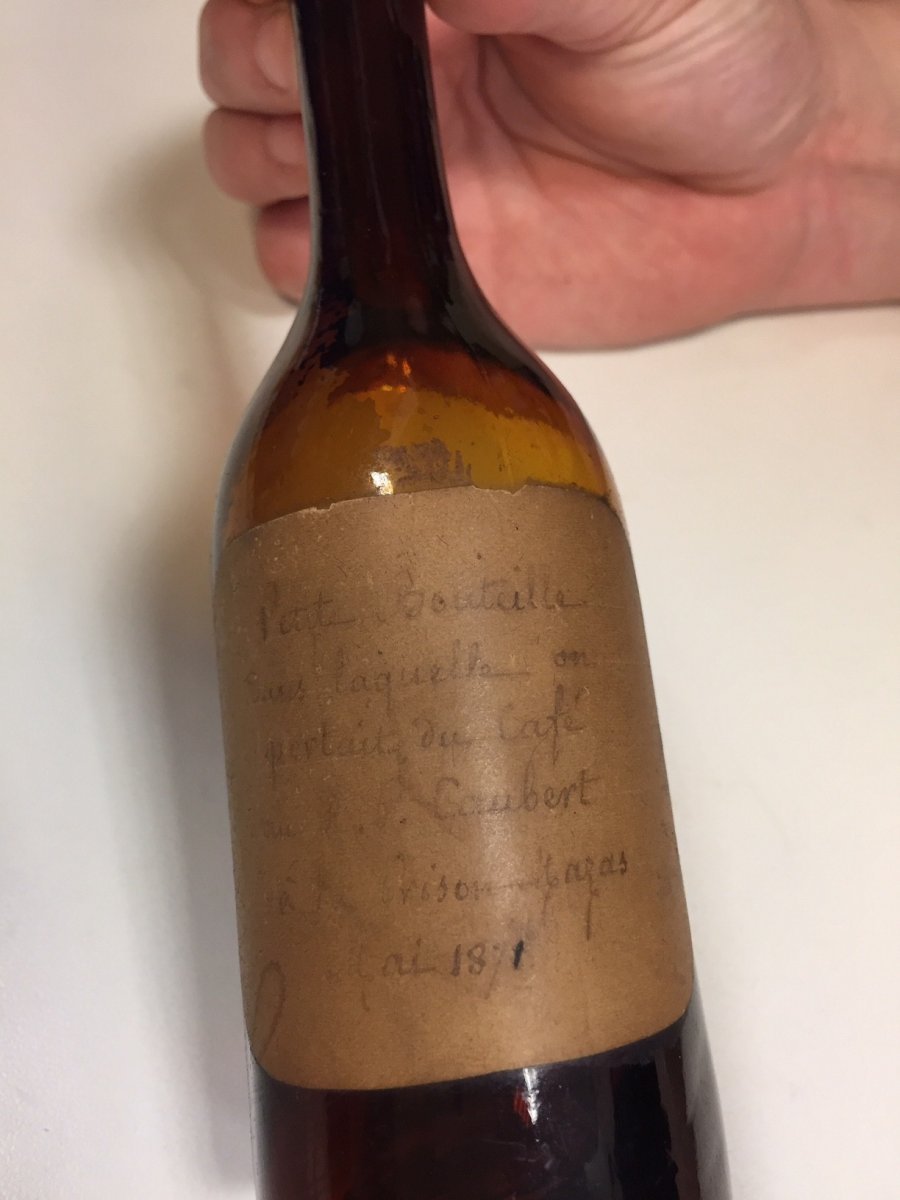 Petite Bouteille
dans laquelle on
portait du Café
au P. Caubert
à la Prison Mazas
Mai 1871